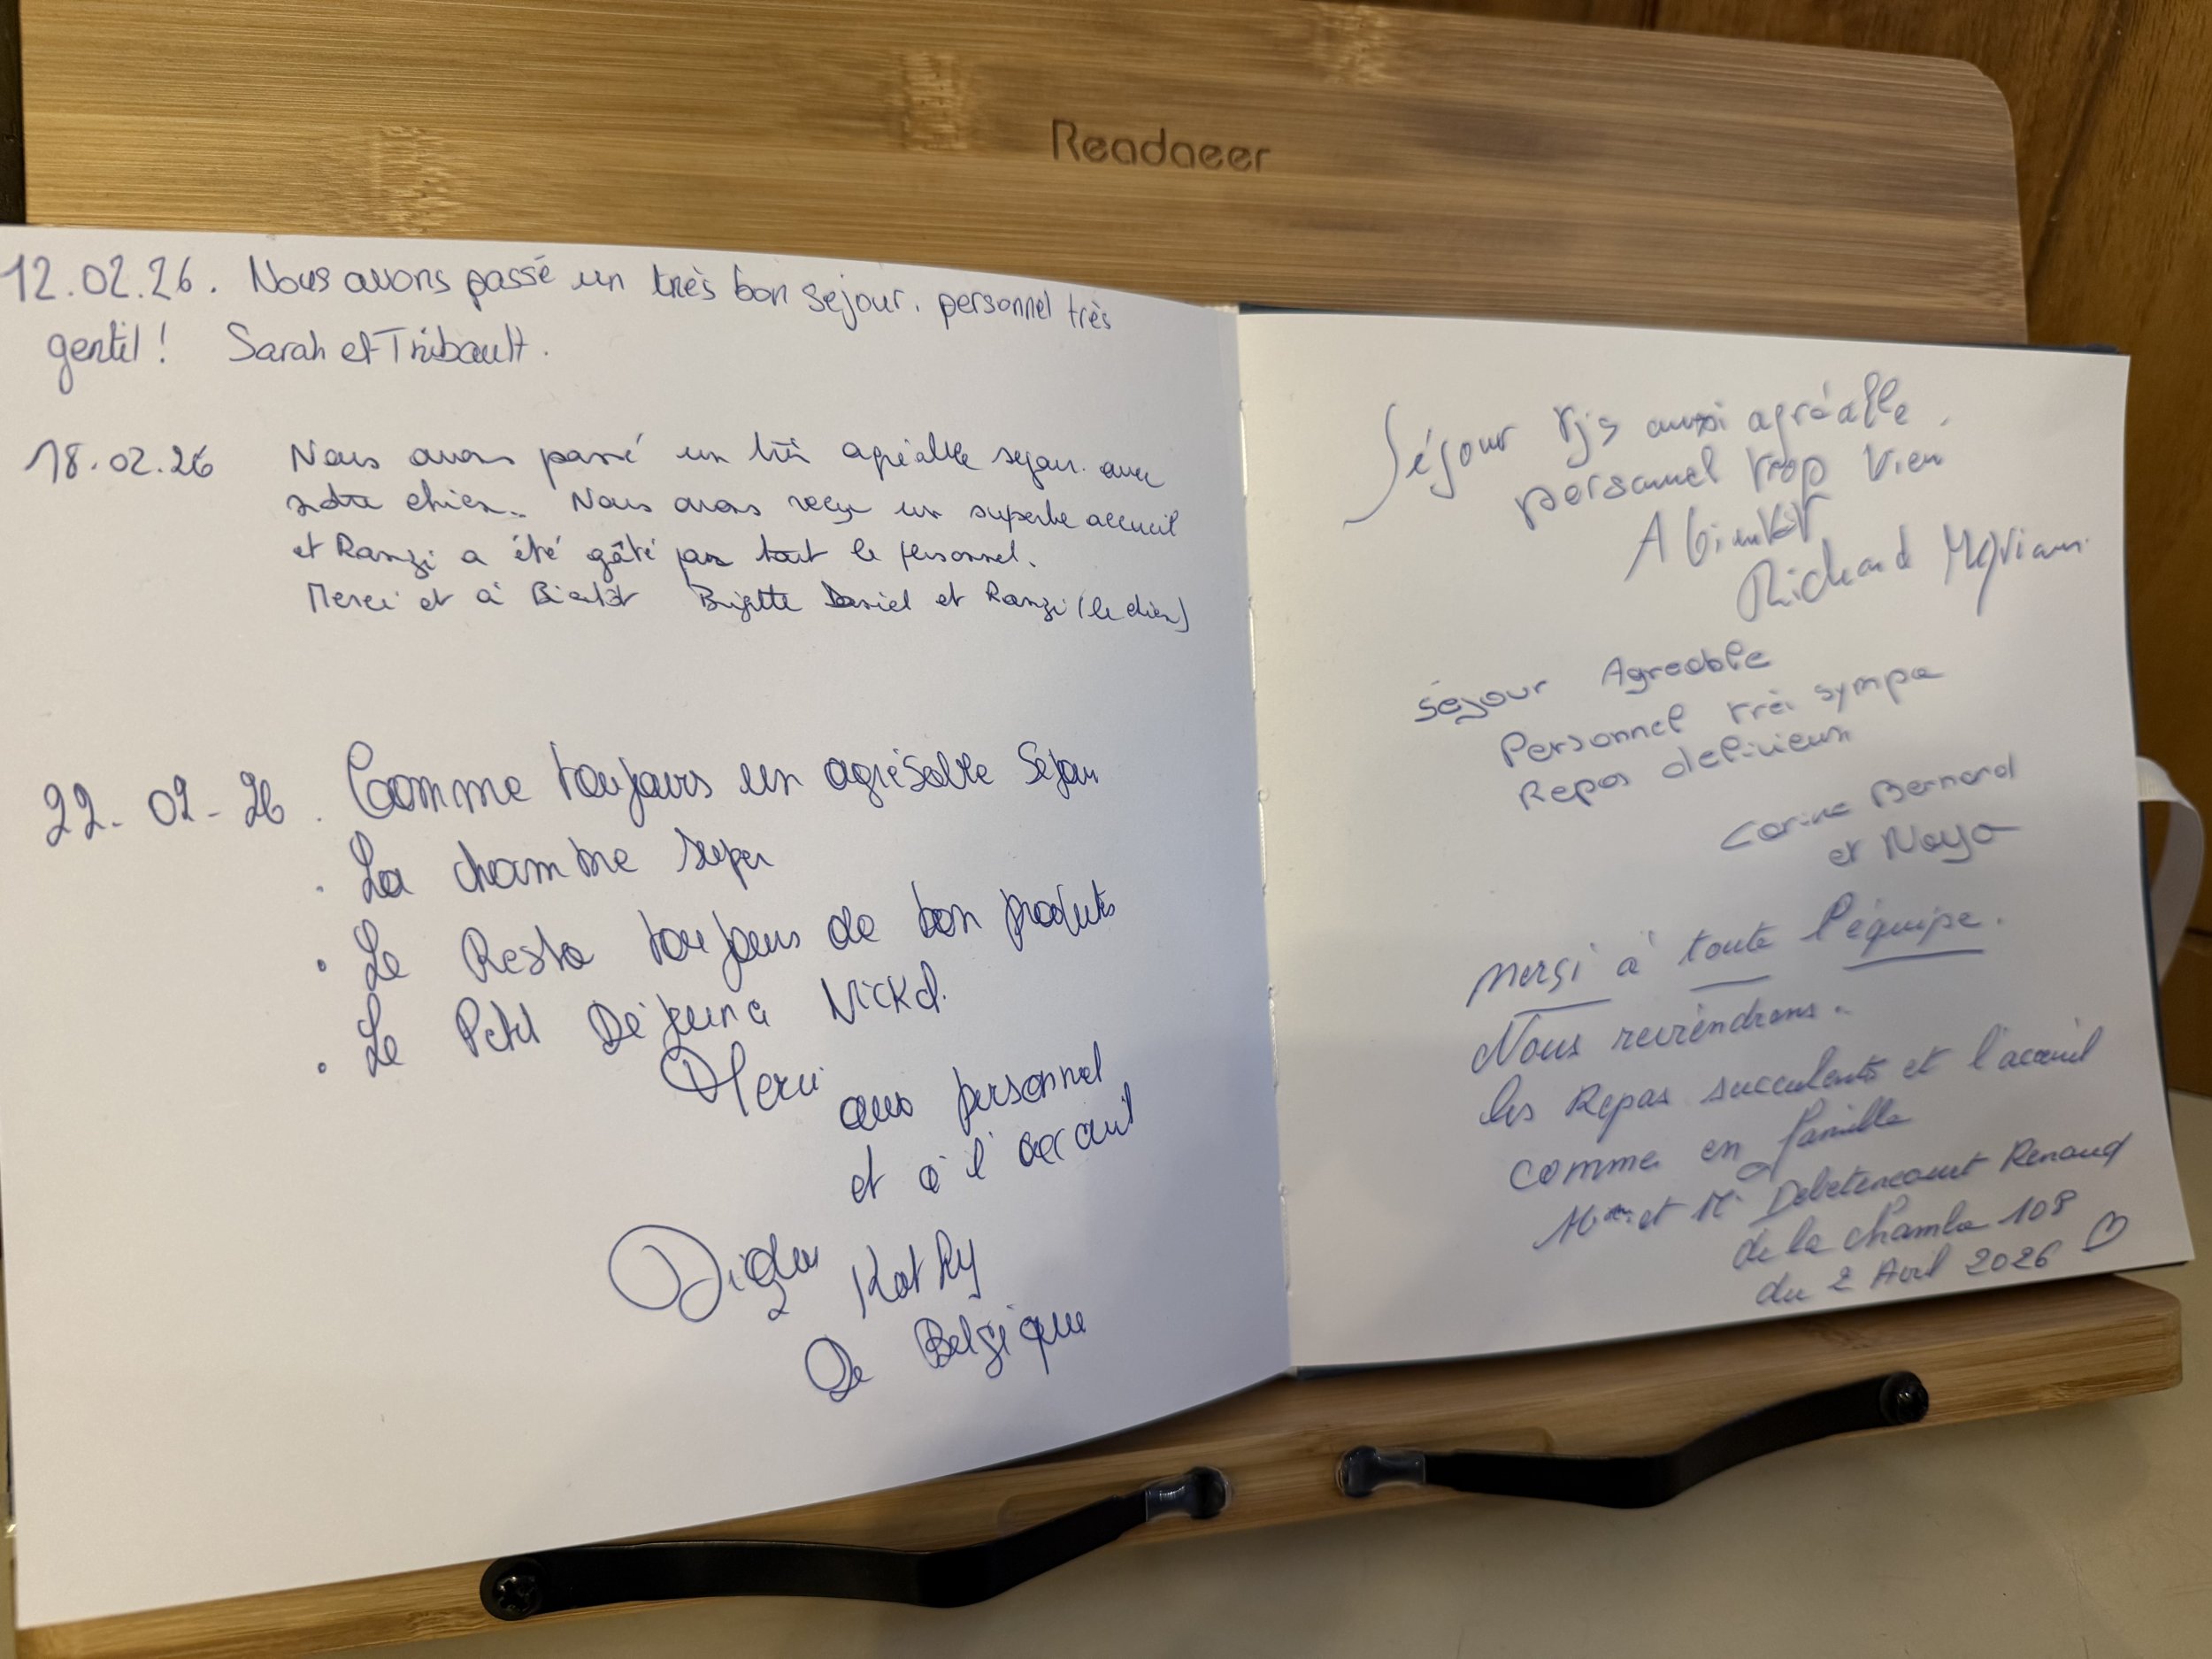 Readaeer
12.02.26. Nous avons passé un très bon séjour. personnel très
gentil ! Sarah et Thibault.
18.02.26 Nous avons passé un très agréable sejour avec
notre chien.. Nous avons reçu un superbe accueil
et Ramzi a été gâté par tout le personnel.
Merci et à Bientôt Brigitte Daniel et Ramzi (le chien)
22-02-26. Comme toujours un agréable Séjour
. La chambre super
. Le Resto toujours de bon produits
. Le Petit Déjeuné Nickel.
Merci aux personnel
et à l'accueil
Didier Kathy
De Belgique
Séjour tjs aussi agréable.
personnel trop bien
A bientôt
Richard Myriam
Séjour Agreable
Personnel très sympa
Repas delicieux
Corine Bernard
et Naya
Merçi à toute l'équipe.
Nous reviendrons..
les Repas succulents et l'acceuil
comme en famille
Mme et Mr Debetencourt Renaud
de la chambre 108
du 2 Avril 2026 ♡